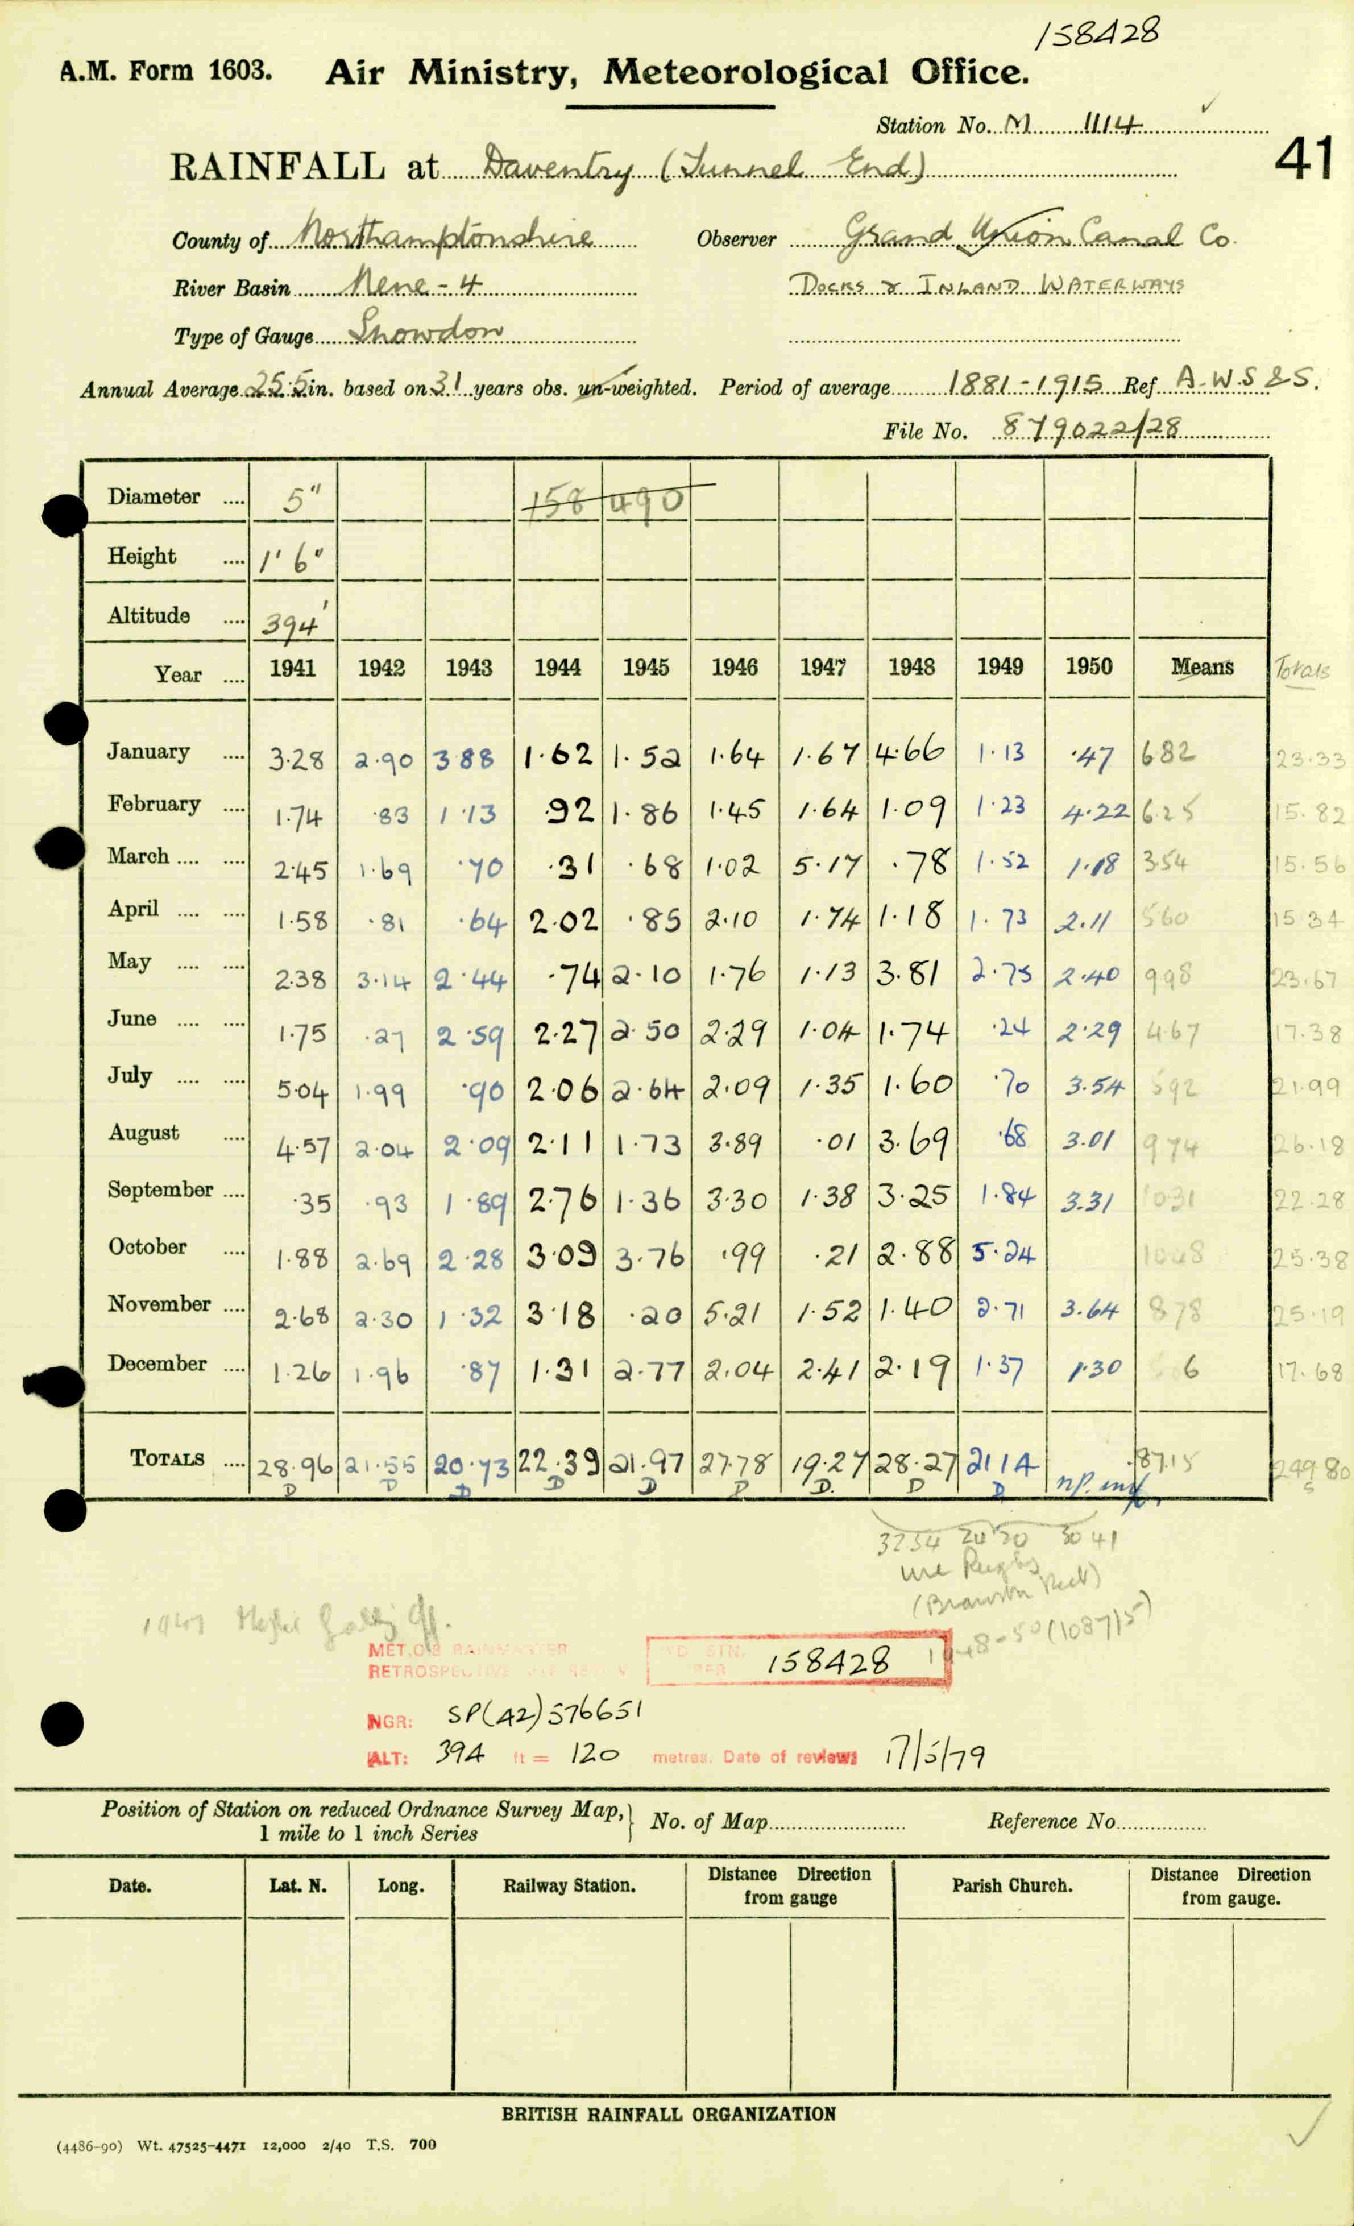 158428
A.M. Form 1603. Air Ministry, Meteorological Office.
Station No. M 1114
RAINFALL at Daventry (Tunnel End)
41
County of Northamptonshire Observer Grand Union Canal Co.
River Basin Nene - 4 DOCKS & INLAND WATERWAYS
Type of Gauge Snowdon
Annual Average 25.5 in. based on 31 years obs. un-weighted. Period of average 1881-1915 Ref A.W.S & S.
File No. 879022/28
Diameter .... 5" 158 490
Height .... 1' 6"
Altitude .... 394'
Year .... 1941 1942 1943 1944 1945 1946 1947 1948 1949 1950 Means Totals
January .... 3.28 2.90 3.88 1.62 1.52 1.64 1.67 4.66 1.13 .47 682 23.33
February .... 1.74 .83 1.13 .92 1.86 1.45 1.64 1.09 1.23 4.22 6.25 15.82
March .... .... 2.45 1.69 .70 .31 .68 1.02 5.17 .78 1.52 1.18 354 15.56
April .... .... 1.58 .81 .64 2.02 .85 2.10 1.74 1.18 1.73 2.11 560 15 34
May .... .... 2.38 3.14 2.44 .74 2.10 1.76 1.13 3.81 2.75 2.40 998 23.67
June .... .... 1.75 .27 2.59 2.27 2.50 2.29 1.04 1.74 .24 2.29 467 17.38
July .... .... 5.04 1.99 .90 2.06 2.64 2.09 1.35 1.60 .70 3.54 592 21.99
August .... 4.57 2.04 2.09 2.11 1.73 3.89 .01 3.69 .68 3.01 974 26.18
September .... .35 .93 1.89 2.76 1.36 3.30 1.38 3.25 1.84 3.31 1031 22.28
October .... 1.88 2.69 2.28 3.09 3.76 .99 .21 2.88 5.24 25.38
November .... 2.68 2.30 1.32 3.18 .20 5.21 1.52 1.40 2.71 3.64 878 25.19
December .... 1.26 1.96 .87 1.31 2.77 2.04 2.41 2.19 1.37 1.30 6 17.68
TOTALS .... 28.96 21.55 20.73 22.39 21.97 27.78 19.27 28.27 21 14 87.15 249 80
D D D D D D D. D D
3254 30 41
use Rugby
(Braunston Rect)
1948-50 (108715)
1947
MET.O.8 RAINMASTER
RETROSPECTIVE
STN. 158428
NGR: SP(42)576651
ALT: 394 ft = 120 metres. Date of review: 17/5/79
Position of Station on reduced Ordnance Survey Map,} No. of Map Reference No.
1 mile to 1 inch Series
Date. Lat. N. Long. Railway Station. Distance Direction from gauge Parish Church. Distance Direction from gauge.
BRITISH RAINFALL ORGANIZATION
(4486-90) Wt. 47525-4471 12,000 2/40 T.S. 700